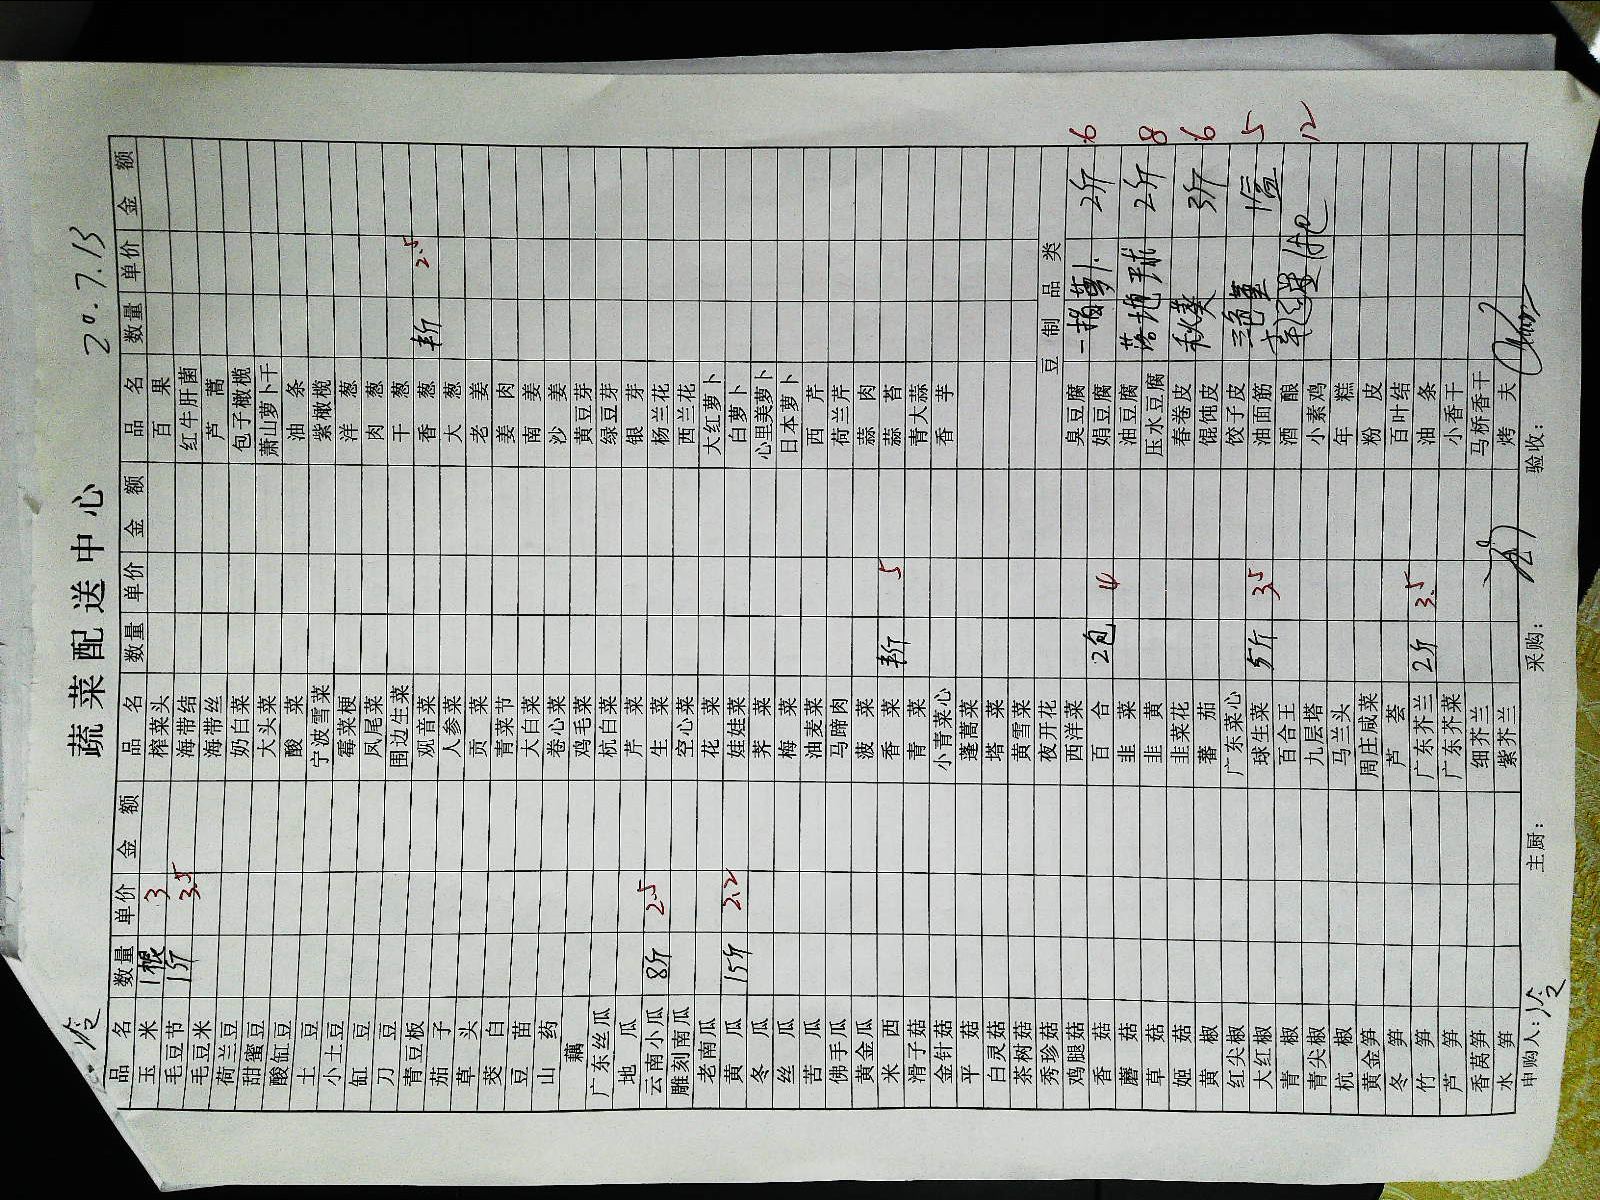 冷
蔬菜配送中心
20.7.13
品名 数量 单价 金额 品名 数量 单价 金额 品名 数量 单价 金额
玉米 1根 3 榨菜头 百果
毛豆节 1斤 3.5 海带结 红牛肝菌
毛豆米 海带丝 芦蒿
荷兰豆 奶白菜 包子橄榄
甜蜜豆 大头菜 萧山萝卜干
酸缸豆 酸菜 油条
土豆 宁波雪菜 紫橄榄
小土豆 霉菜梗 洋葱
缸豆 凤尾菜 肉葱
刀豆 围边生菜 干葱
青豆板 观音菜 香葱 半斤 2.5
茄子 人参菜 大葱
草头 贡菜 老姜
茭白 青菜节 姜肉
豆苗 大白菜 南姜
山药 卷心菜 沙姜
藕 鸡毛菜 黄豆芽
广东丝瓜 杭白菜 绿豆芽
地瓜 芹菜 银芽
云南小瓜 8斤 2.5 生菜 杨兰花
雕刻南瓜 空心菜 西兰花
老南瓜 花菜 大红萝卜
黄瓜 15斤 2.2 娃娃菜 白萝卜
冬瓜 荠菜 心里美萝卜
丝瓜 梅菜 日本萝卜
苦瓜 油麦菜 西芹
佛手瓜 马蹄肉 荷兰芹
黄金瓜 菠菜 蒜肉
米西 香菜 半斤 5 蒜苔
滑子菇 青菜 青大蒜
金针菇 小青菜心 香芋
平菇 蓬蒿菜
白灵菇 塔菜
茶树菇 黄雪菜
秀珍菇 夜开花 豆制品类
鸡腿菇 西洋菜 臭豆腐 一指萝卜 2斤 6
香菇 百合 2包 4 娟豆腐
蘑菇 韭菜 油豆腐 2斤 8
草菇 韭黄 压水豆腐
姬菇 韭菜花 春卷皮 秋葵 3斤 6
黄椒 蕃茄 馄饨皮
红尖椒 广东菜心 饺子皮 三色堇 1盒 5
大红椒 球生菜 5斤 3.5 油面筋
青椒 百合王 酒酿 12
青尖椒 九层塔 小素鸡
杭椒 马兰头 年糕
黄金笋 周庄咸菜 粉皮
冬笋 芦荟 百叶结
竹笋 广东芥兰 2斤 3.5 油条
芦笋 广东芥菜 小香干
香莴笋 细芥兰 马桥香干
水笋 紫芥兰 烤夫
申购人:冷 主厨: 采购: 验收: